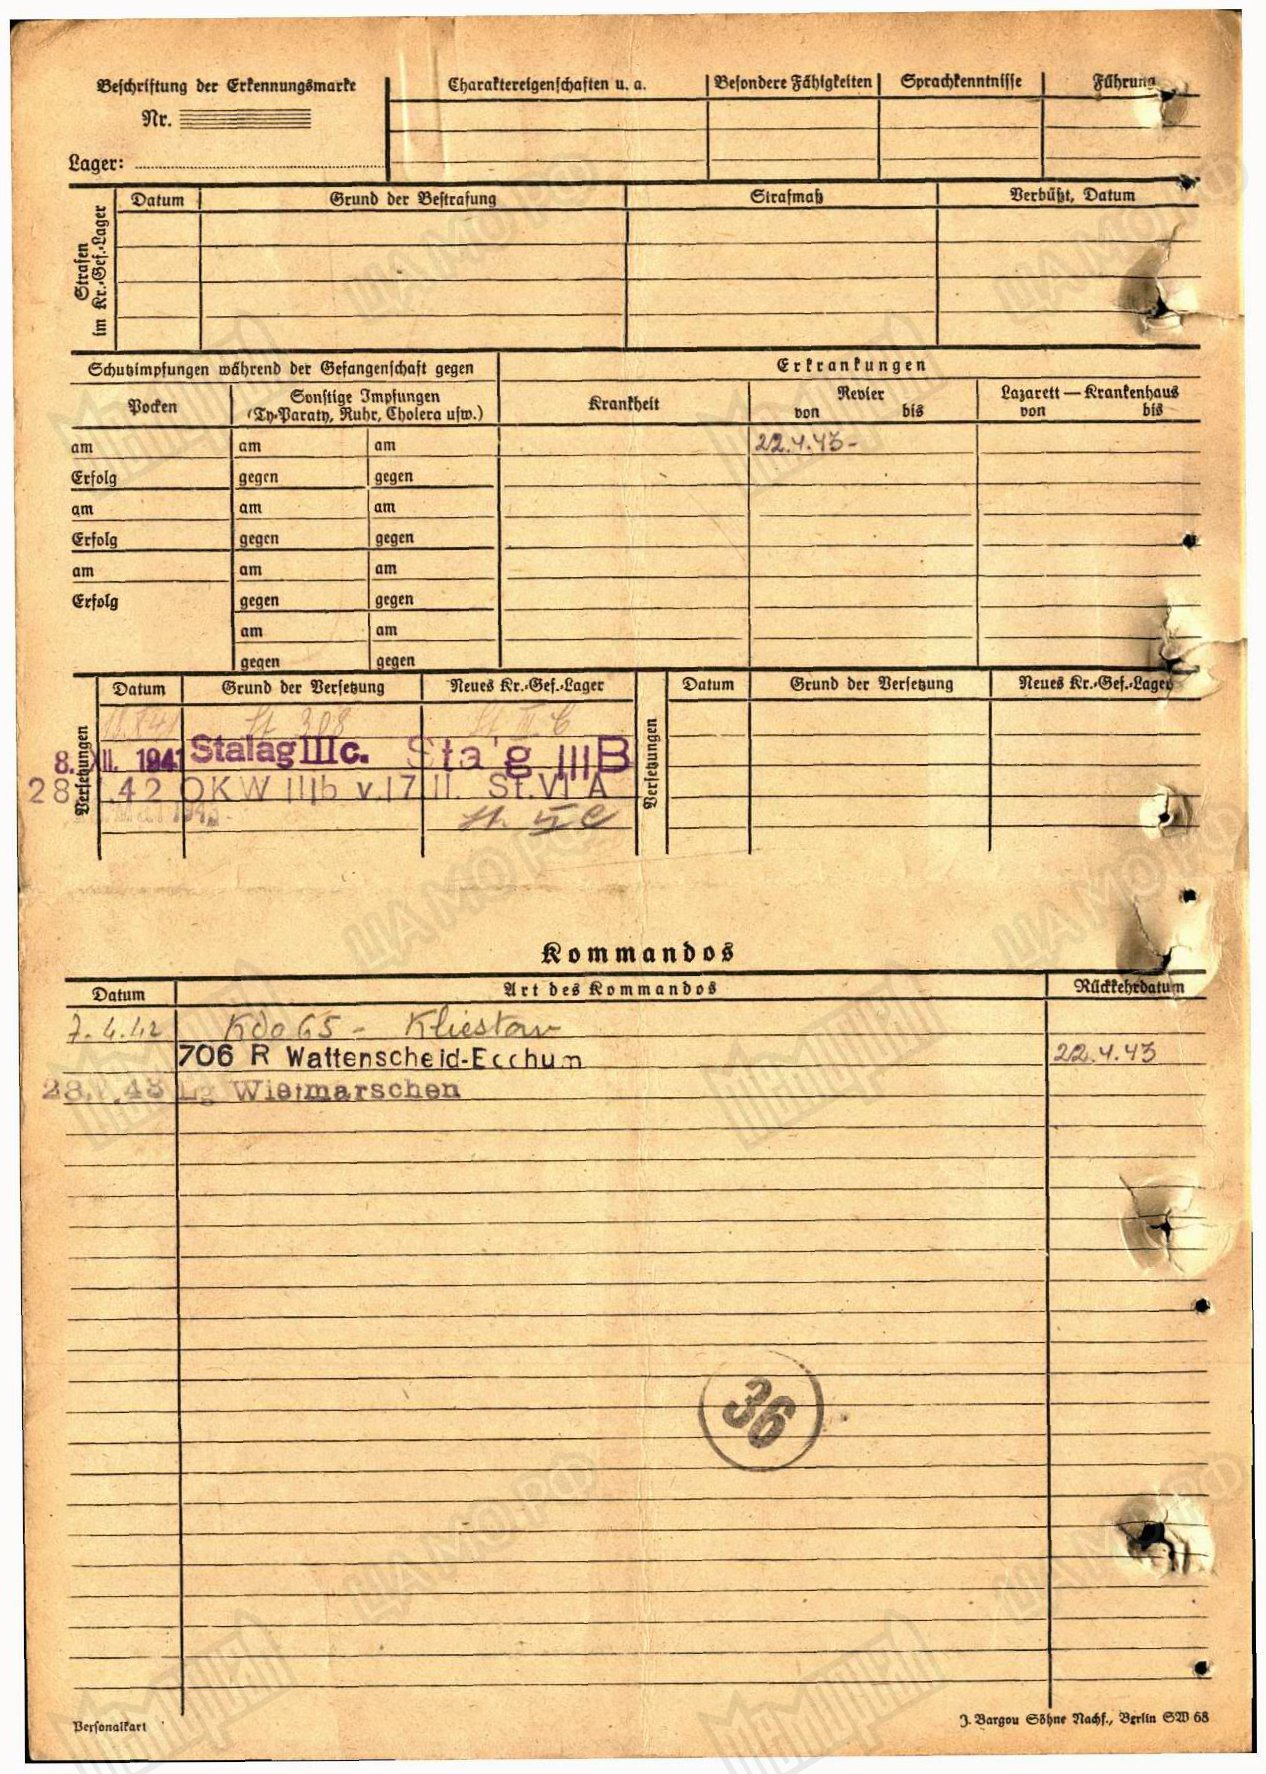 Beschriftung der Erkennungsmarke
Nr.
Lager:
Charaktereigenschaften u. a. Besondere Fähigkeiten Sprachkenntnisse Führung
Strafen im Kr.-Gef.-Lager
Datum Grund der Bestrafung Strafmaß Verbüßt, Datum
Schutzimpfungen während der Gefangenschaft gegen Erkrankungen
Pocken Sonstige Impfungen (Ty-Paraty, Ruhr, Cholera usw.) Krankheit Revier von bis Lazarett — Krankenhaus von bis
am am am 22.4.43-
Erfolg gegen gegen
am am am
Erfolg gegen gegen
am am am
Erfolg gegen gegen
am am
gegen gegen
Versetzungen
Datum Grund der Versetzung Neues Kr.-Gef.-Lager
St 308 St III C
8. XII. 1941 Stalag IIIc. Stalag IIIB
28 .42 OKW IIIb v.17 II. St. VI A
1942. St. VI C
Versetzungen
Datum Grund der Versetzung Neues Kr.-Gef.-Lager
Kommandos
Datum Art des Kommandos Rückkehrdatum
7.4.42 Kdo 65 - Kliestow
706 R Wattenscheid- 22.4.43
28. .43 Lg Wietmarschen
36
Personalkart
J. Bargou Söhne Nachf., Berlin SW 68
ЦАМО РФ